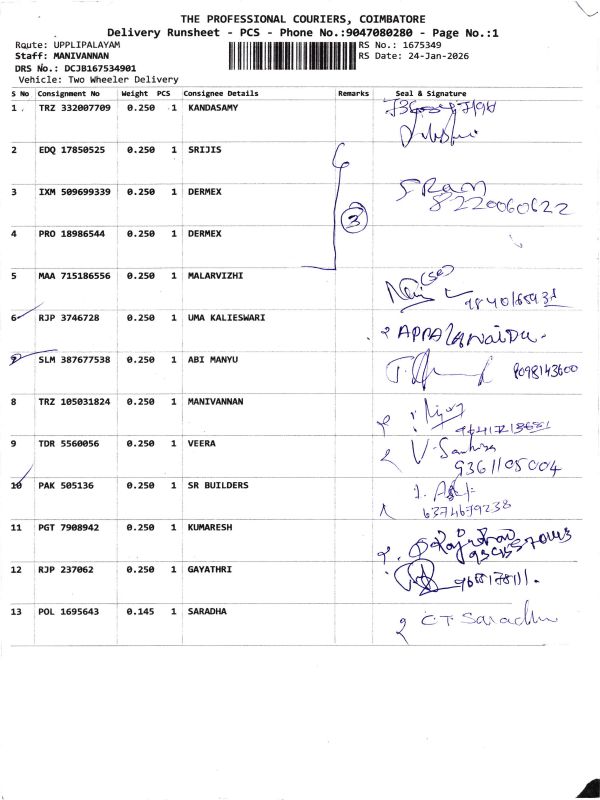 THE PROFESSIONAL COURIERS, COIMBATORE
Delivery Runsheet - PCS - Phone No.:9047080280 - Page No.:1
Route: UPPLIPALAYAM RS No.: 1675349
Staff: MANIVANNAN RS Date: 24-Jan-2026
DRS No.: DCJB167534901
Vehicle: Two Wheeler Delivery
S No Consignment No Weight PCS Consignee Details Remarks Seal & Signature
1 TRZ 332007709 0.250 1 KANDASAMY
2 EDQ 17850525 0.250 1 SRIJIS
3 IXM 509699339 0.250 1 DERMEX
8220060622
3
4 PRO 18986544 0.250 1 DERMEX
5 MAA 715186556 0.250 1 MALARVIZHI
6 RJP 3746728 0.250 1 UMA KALIESWARI
7 SLM 387677538 0.250 1 ABI MANYU 9098143600
8 TRZ 105031824 0.250 1 MANIVANNAN
9 TDR 5560056 0.250 1 VEERA
9361105004
10 PAK 505136 0.250 1 SR BUILDERS
6374679238
11 PGT 7908942 0.250 1 KUMARESH
12 RJP 237062 0.250 1 GAYATHRI
13 POL 1695643 0.145 1 SARADHA C T Saradha